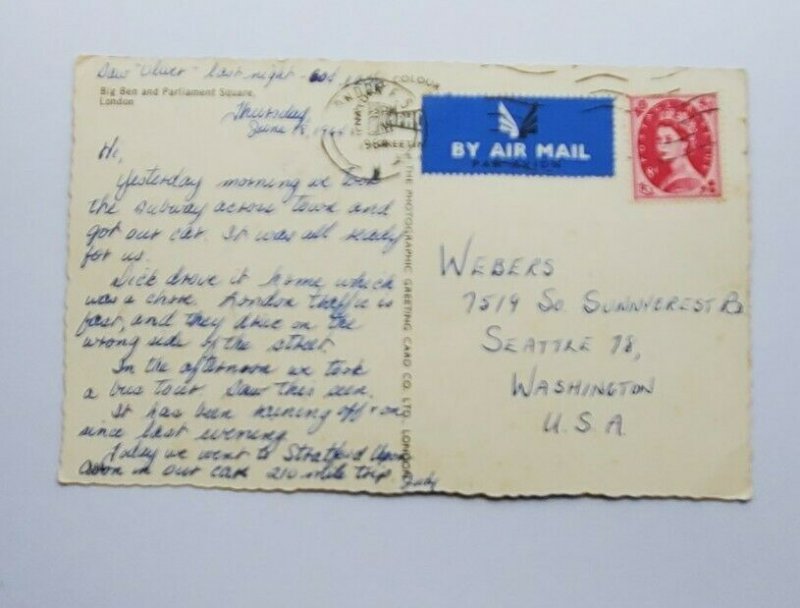 Saw "Oliver" last night -
Big Ben and Parliament Square,
London
Thursday
June 18, 1964
Hi,
Yesterday morning we took
the subway across town and
got our car. It was all ready
for us.
Dick drove it home which
was a chore. London traffic is
fast, and they drive on the
wrong side of the street.
In the afternoon we took
a bus tour. Saw this scene.
It has been raining off + on
since last evening.
Today we went to Stratford Upon
Avon in our car 210 mile trip.
Judy
COLOUR
THE PHOTOGRAPHIC GREETING CARD CO., LTD., LONDON
BY AIR MAIL
PAR AVION
WEBERS
7519 SO. SUNNYCREST RD
SEATTLE 78,
WASHINGTON
U.S.A